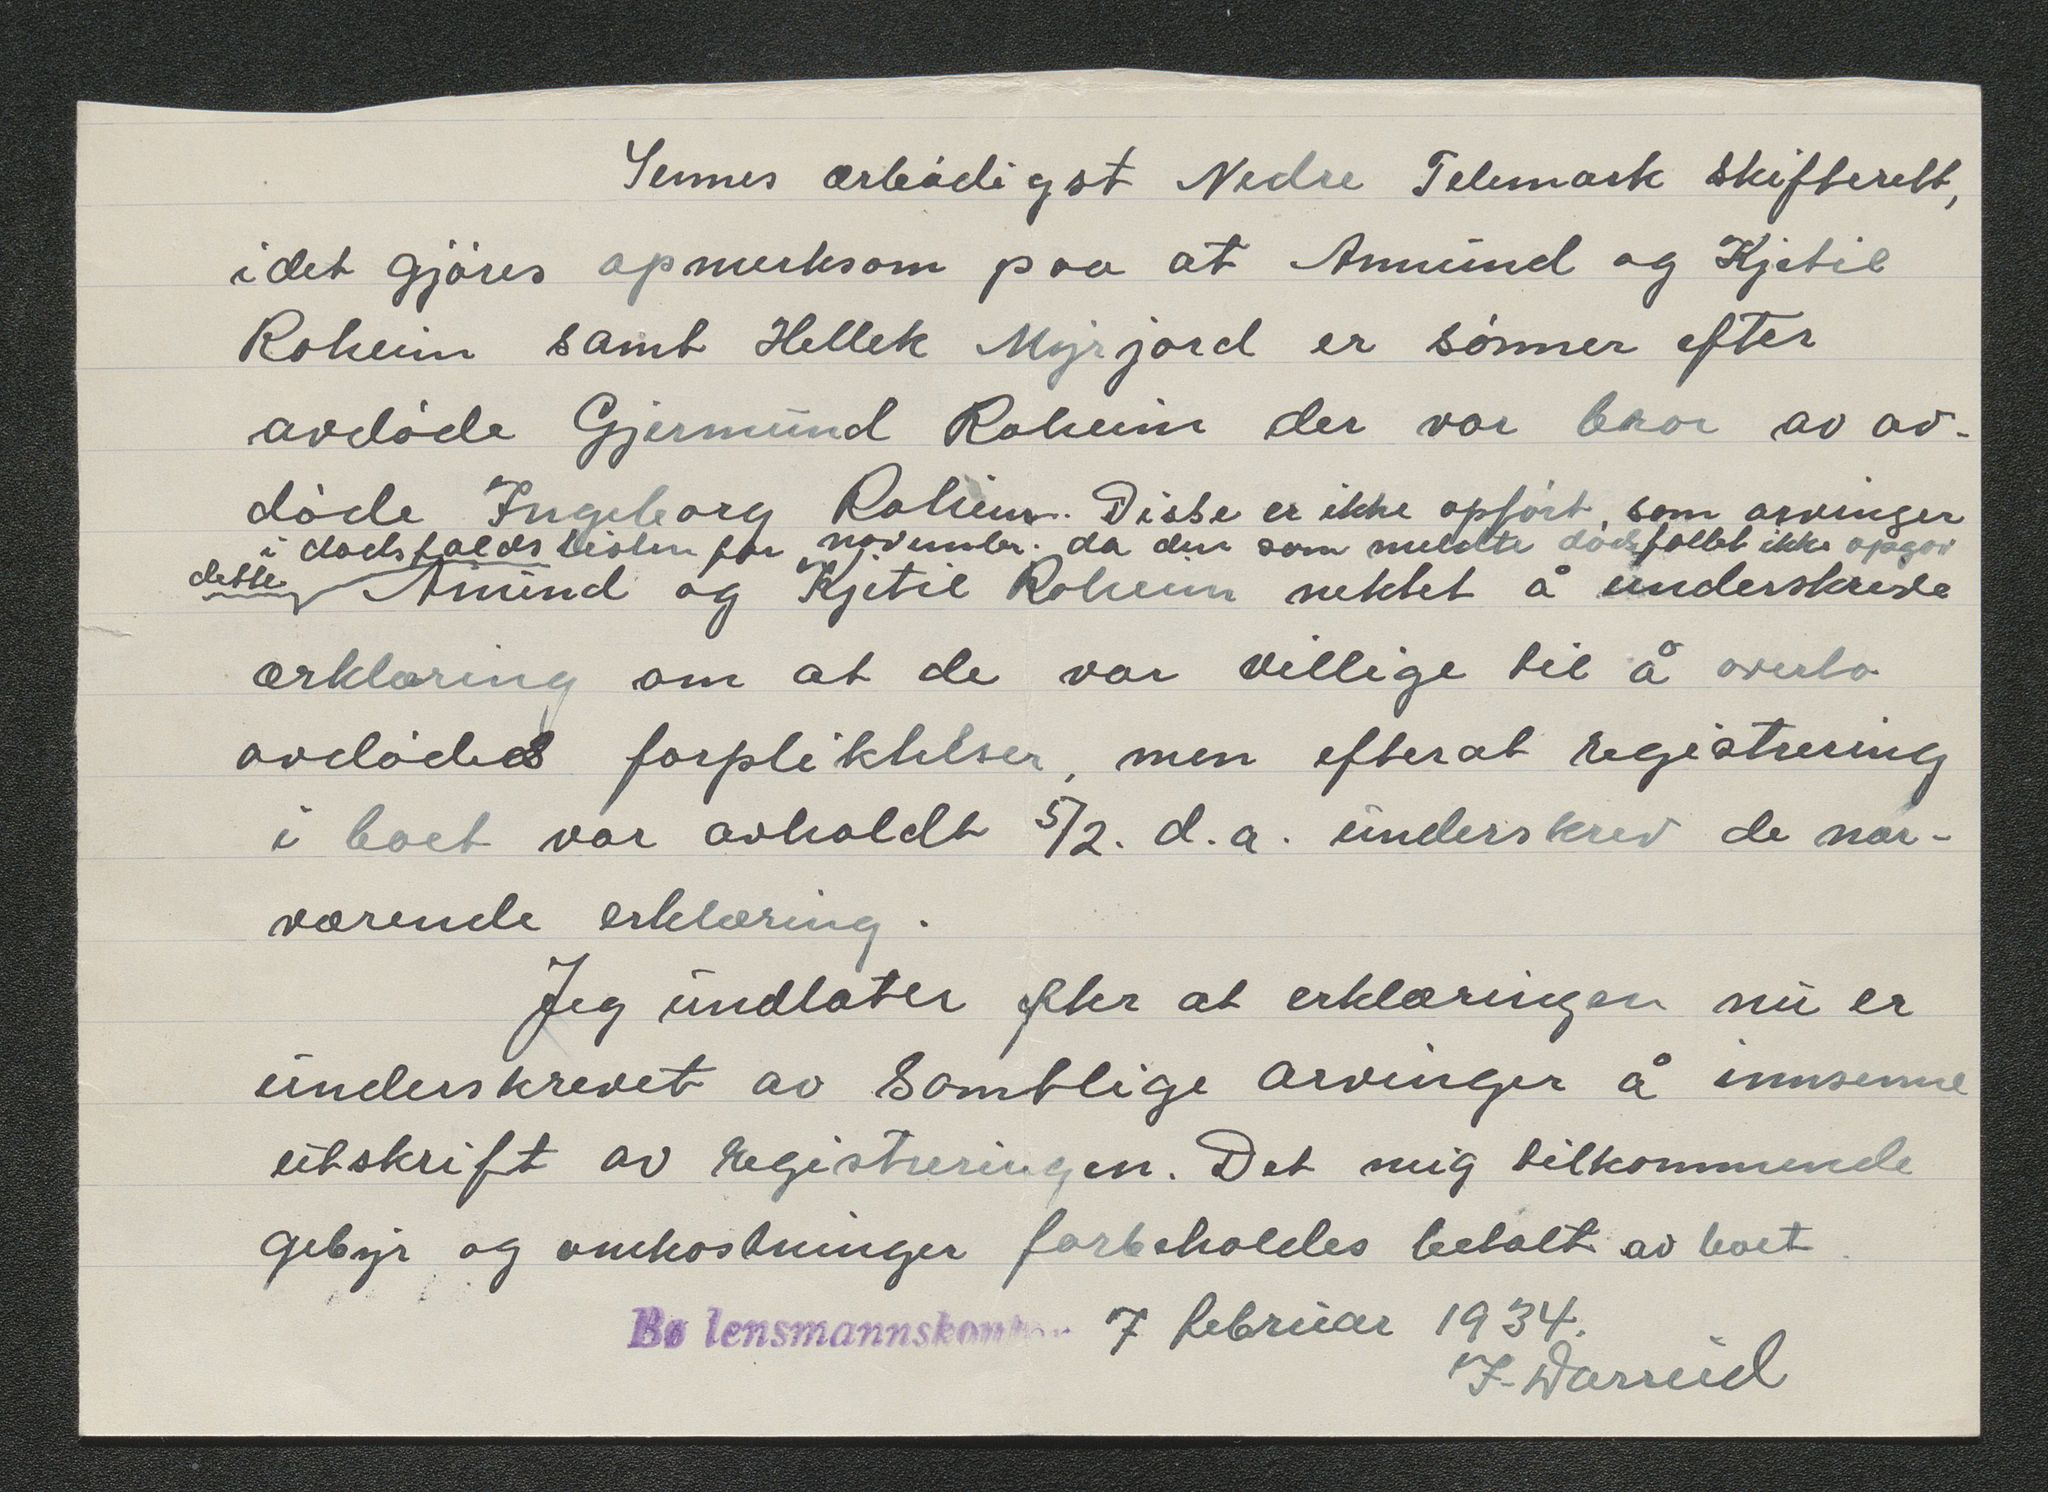 Sennes ærbödigst Nedre Telemark Skifterett,
idet gjöres opmerksom paa at Amund og Kjetil
Roheim samt Hellek Myrjord er sönner efter
avdöde Gjermund Roheim der var bror av av-
döde Ingeborg Roheim. Disse er ikke opfört som arvinger
i dødsfaldslisten for november da den som meldte dödsfallet ikke opgav
dette
Amund og Kjetil Roheim nektet å underskrive
erklæring om at de var villige til å overta
avdödes forpliktelser, men efterat registrering
i boet var avholdt 5/2. d.a. underskrev de nær-
værende erklæring.
Jeg undlater efter at erklæringen nu er
underskrevet av samtlige arvinger å innsenne
utskrift av registreringen. Det mig tilkommende
gebyr og omkostninger forbeholdes betalt av boet.
Bø lensmannskontor 7 februar 1934.